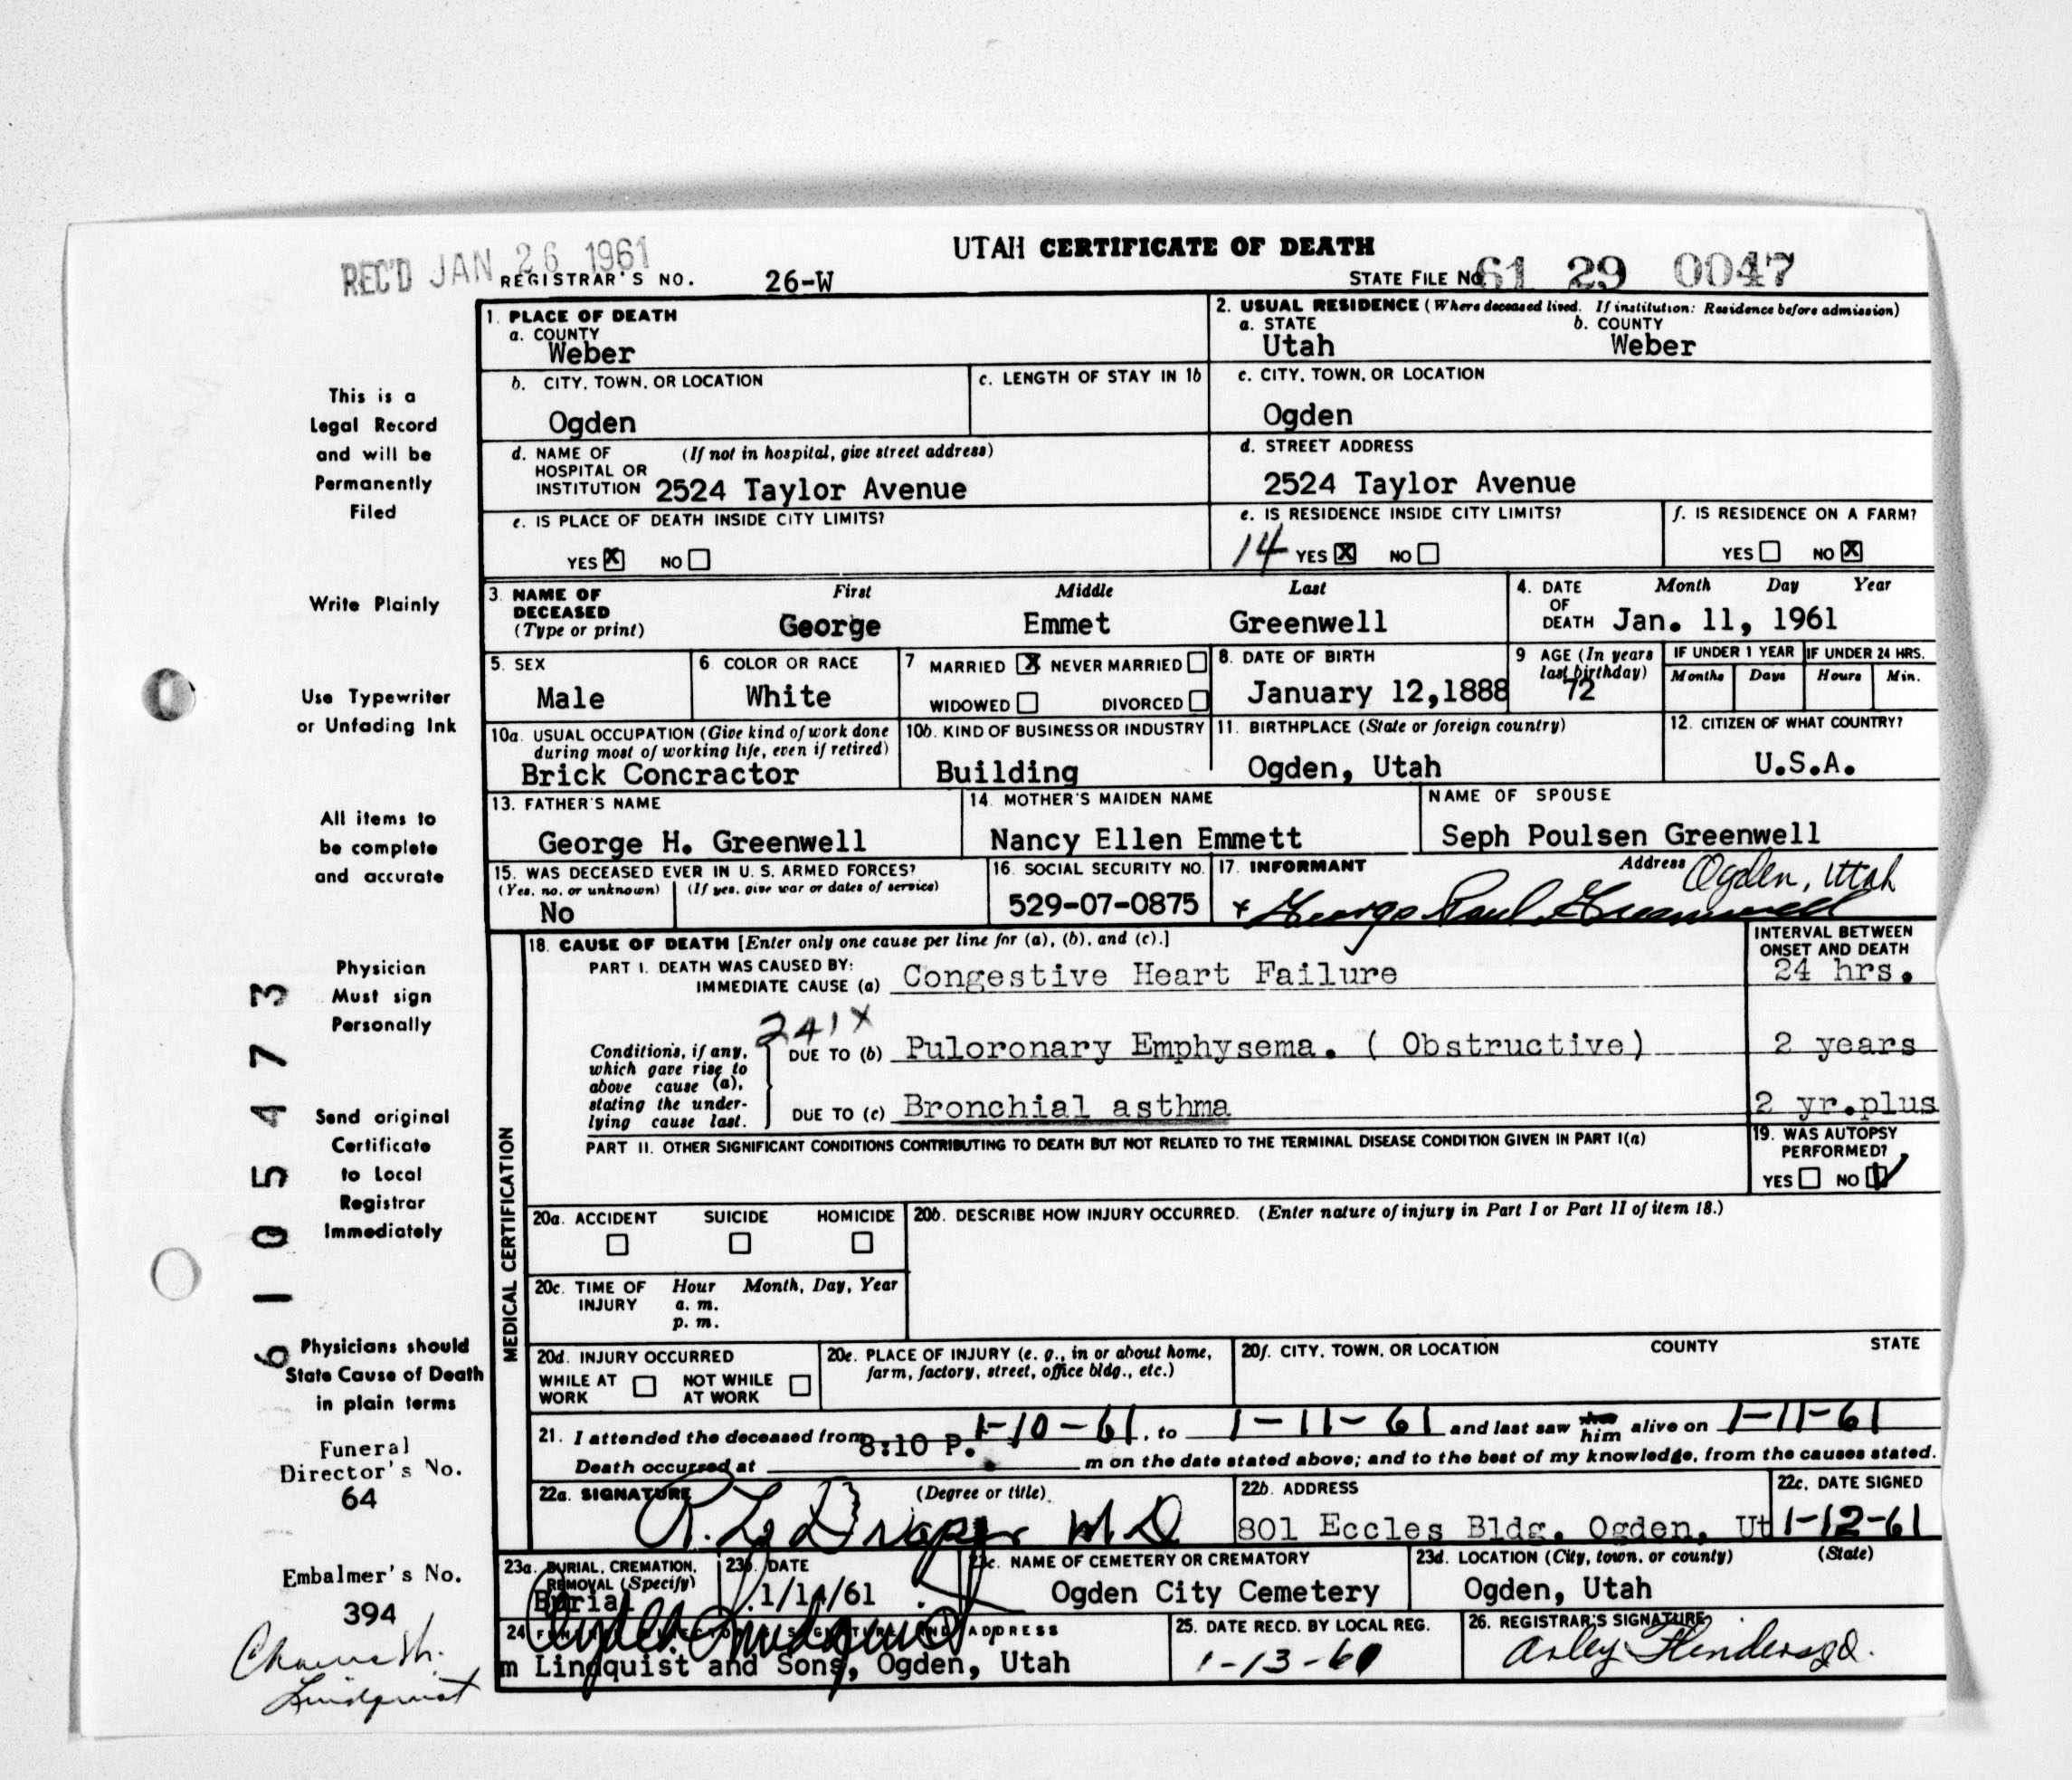 UTAH CERTIFICATE OF DEATH
REC'D JAN 26 1961
REGISTRAR'S NO. 26-W
STATE FILE NO. 61 29 0047
1. PLACE OF DEATH
a. COUNTY
Weber
2. USUAL RESIDENCE (Where deceased lived. If institution: Residence before admission)
a. STATE b. COUNTY
Utah Weber
b. CITY, TOWN, OR LOCATION
Ogden
c. LENGTH OF STAY IN 1b
c. CITY, TOWN, OR LOCATION
Ogden
d. NAME OF (If not in hospital, give street address)
HOSPITAL OR
INSTITUTION 2524 Taylor Avenue
d. STREET ADDRESS
2524 Taylor Avenue
e. IS PLACE OF DEATH INSIDE CITY LIMITS?
YES X NO
e. IS RESIDENCE INSIDE CITY LIMITS?
14 YES X NO
f. IS RESIDENCE ON A FARM?
YES NO X
3. NAME OF DECEASED (Type or print)
First Middle Last
George Emmet Greenwell
4. DATE OF DEATH Month Day Year
Jan. 11, 1961
5. SEX
Male
6. COLOR OR RACE
White
7 MARRIED X NEVER MARRIED
WIDOWED DIVORCED
8. DATE OF BIRTH
January 12,1888
9 AGE (In years last birthday)
72
IF UNDER 1 YEAR IF UNDER 24 HRS.
Months Days Hours Min.
10a. USUAL OCCUPATION (Give kind of work done
during most of working life, even if retired)
Brick Concractor
10b. KIND OF BUSINESS OR INDUSTRY
Building
11. BIRTHPLACE (State or foreign country)
Ogden, Utah
12. CITIZEN OF WHAT COUNTRY?
U.S.A.
13. FATHER'S NAME
George H. Greenwell
14. MOTHER'S MAIDEN NAME
Nancy Ellen Emmett
NAME OF SPOUSE
Seph Poulsen Greenwell
15. WAS DECEASED EVER IN U. S. ARMED FORCES?
(Yes, no, or unknown) (If yes, give war or dates of service)
No
16. SOCIAL SECURITY NO.
529-07-0875
17. INFORMANT Address Ogden, Utah
x George Paul Greenwell
18. CAUSE OF DEATH [Enter only one cause per line for (a), (b), and (c).]
INTERVAL BETWEEN
ONSET AND DEATH
PART I. DEATH WAS CAUSED BY:
IMMEDIATE CAUSE (a) Congestive Heart Failure 24 hrs.
241X
Conditions, if any,
which gave rise to
above cause (a),
stating the under-
lying cause last.
DUE TO (b) Puloronary Emphysema. ( Obstructive) 2 years
DUE TO (c) Bronchial asthma 2 yr.plus
PART II. OTHER SIGNIFICANT CONDITIONS CONTRIBUTING TO DEATH BUT NOT RELATED TO THE TERMINAL DISEASE CONDITION GIVEN IN PART I(a)
19. WAS AUTOPSY
PERFORMED?
YES NO
MEDICAL CERTIFICATION
20a. ACCIDENT SUICIDE HOMICIDE
20b. DESCRIBE HOW INJURY OCCURRED. (Enter nature of injury in Part I or Part II of item 18.)
20c. TIME OF INJURY Hour Month, Day, Year
a. m.
p. m.
20d. INJURY OCCURRED
WHILE AT WORK NOT WHILE AT WORK
20e. PLACE OF INJURY (e. g., in or about home,
farm, factory, street, office bldg., etc.)
20f. CITY, TOWN, OR LOCATION COUNTY STATE
21. I attended the deceased from 1-10-61, to 1-11-61 and last saw him alive on 1-11-61
Death occurred at 8:10 P. m on the date stated above; and to the best of my knowledge, from the causes stated.
22a. SIGNATURE (Degree or title)
Draper M D
22b. ADDRESS
801 Eccles Bldg. Ogden, Ut
22c. DATE SIGNED
1-12-61
23a. BURIAL, CREMATION,
REMOVAL (Specify)
Burial
23b. DATE
1/14/61
23c. NAME OF CEMETERY OR CREMATORY
Ogden City Cemetery
23d. LOCATION (City, town, or county) (State)
Ogden, Utah
24 FUNERAL DIRECTOR'S SIGNATURE AND ADDRESS
m Lindquist and Sons, Ogden, Utah
25. DATE RECD. BY LOCAL REG.
1-13-61
26. REGISTRAR'S SIGNATURE
This is a
Legal Record
and will be
Permanently
Filed
Write Plainly
Use Typewriter
or Unfading Ink
All items to
be complete
and accurate
Physician
Must sign
Personally
Send original
Certificate
to Local
Registrar
Immediately
Physicians should
State Cause of Death
in plain terms
Funeral
Director's No.
64
Embalmer's No.
394
Lindquist
6105473